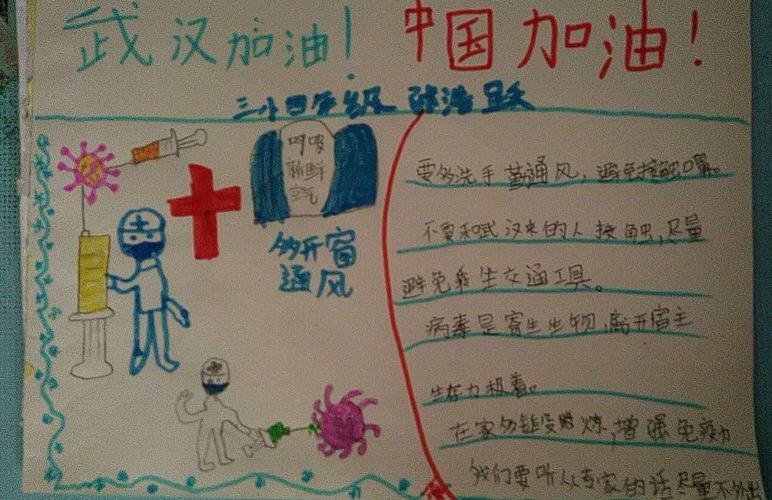 武汉加油！ 中国加油！
三小四年级
呼吸
新鲜
空气
多开窗
通风
要多洗手 勤通风，避免接触口鼻。
不要和武汉来的人接触，尽量
避免乘坐交通工具。
病毒是寄生生物，离开宿主
生存力极差。
在家多锻炼，增强免疫力
我们要听从专家的话 尽量不外出